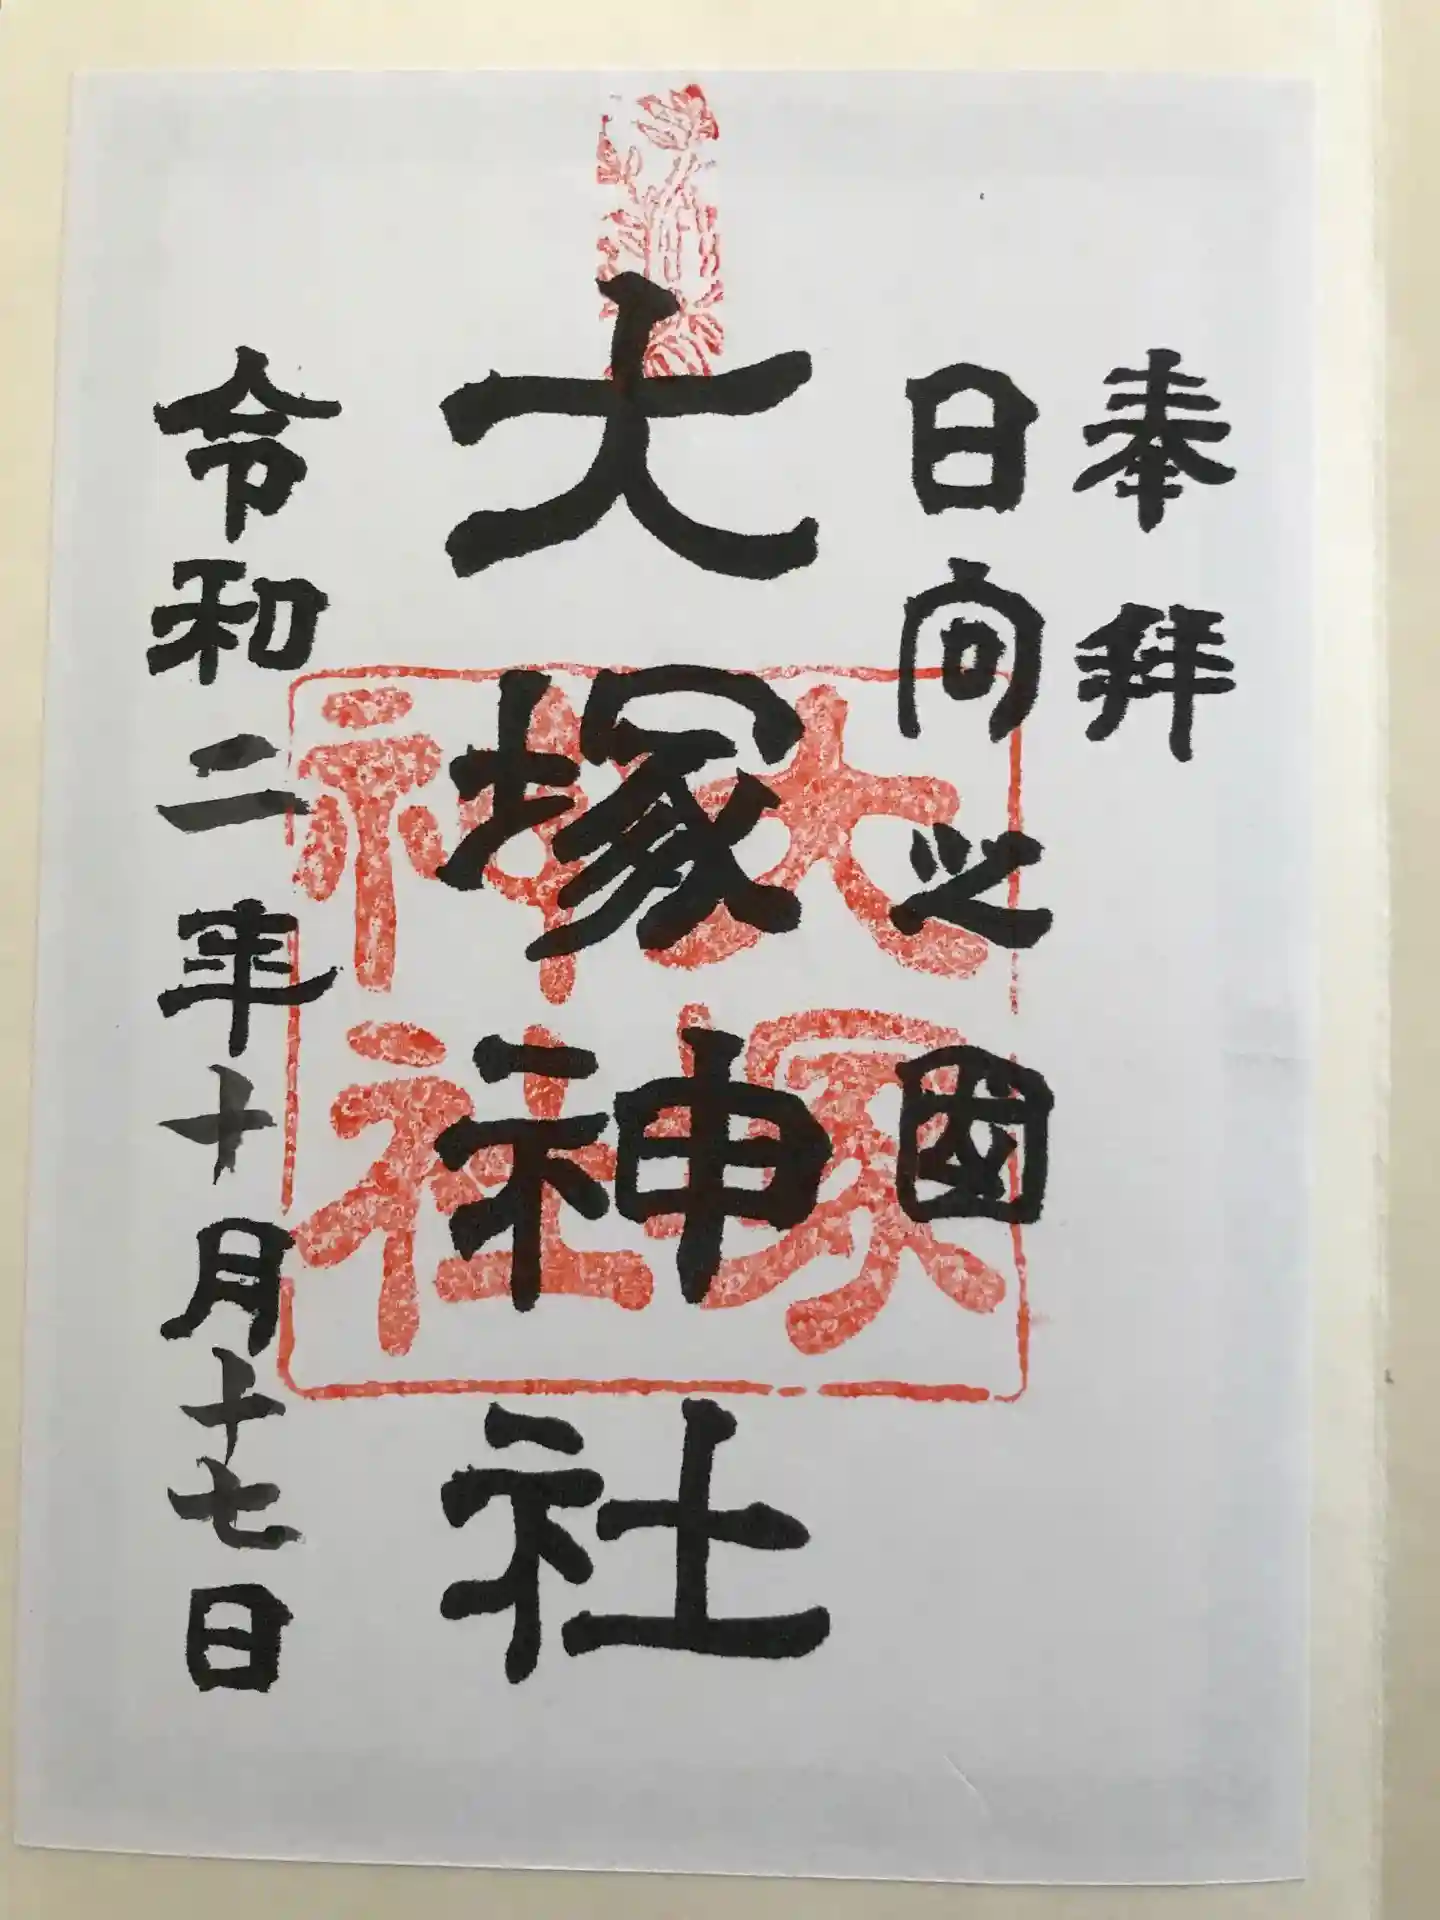 奉拜
日向之国
大塚神社
令和二年十月十七日
大塚
神社